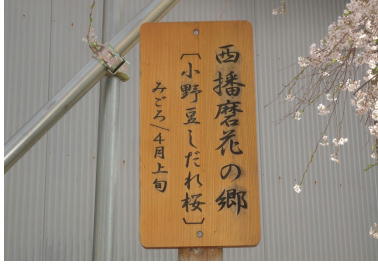 西播磨花の郷
〔小野豆しだれ桜〕
みごろ/4月上旬